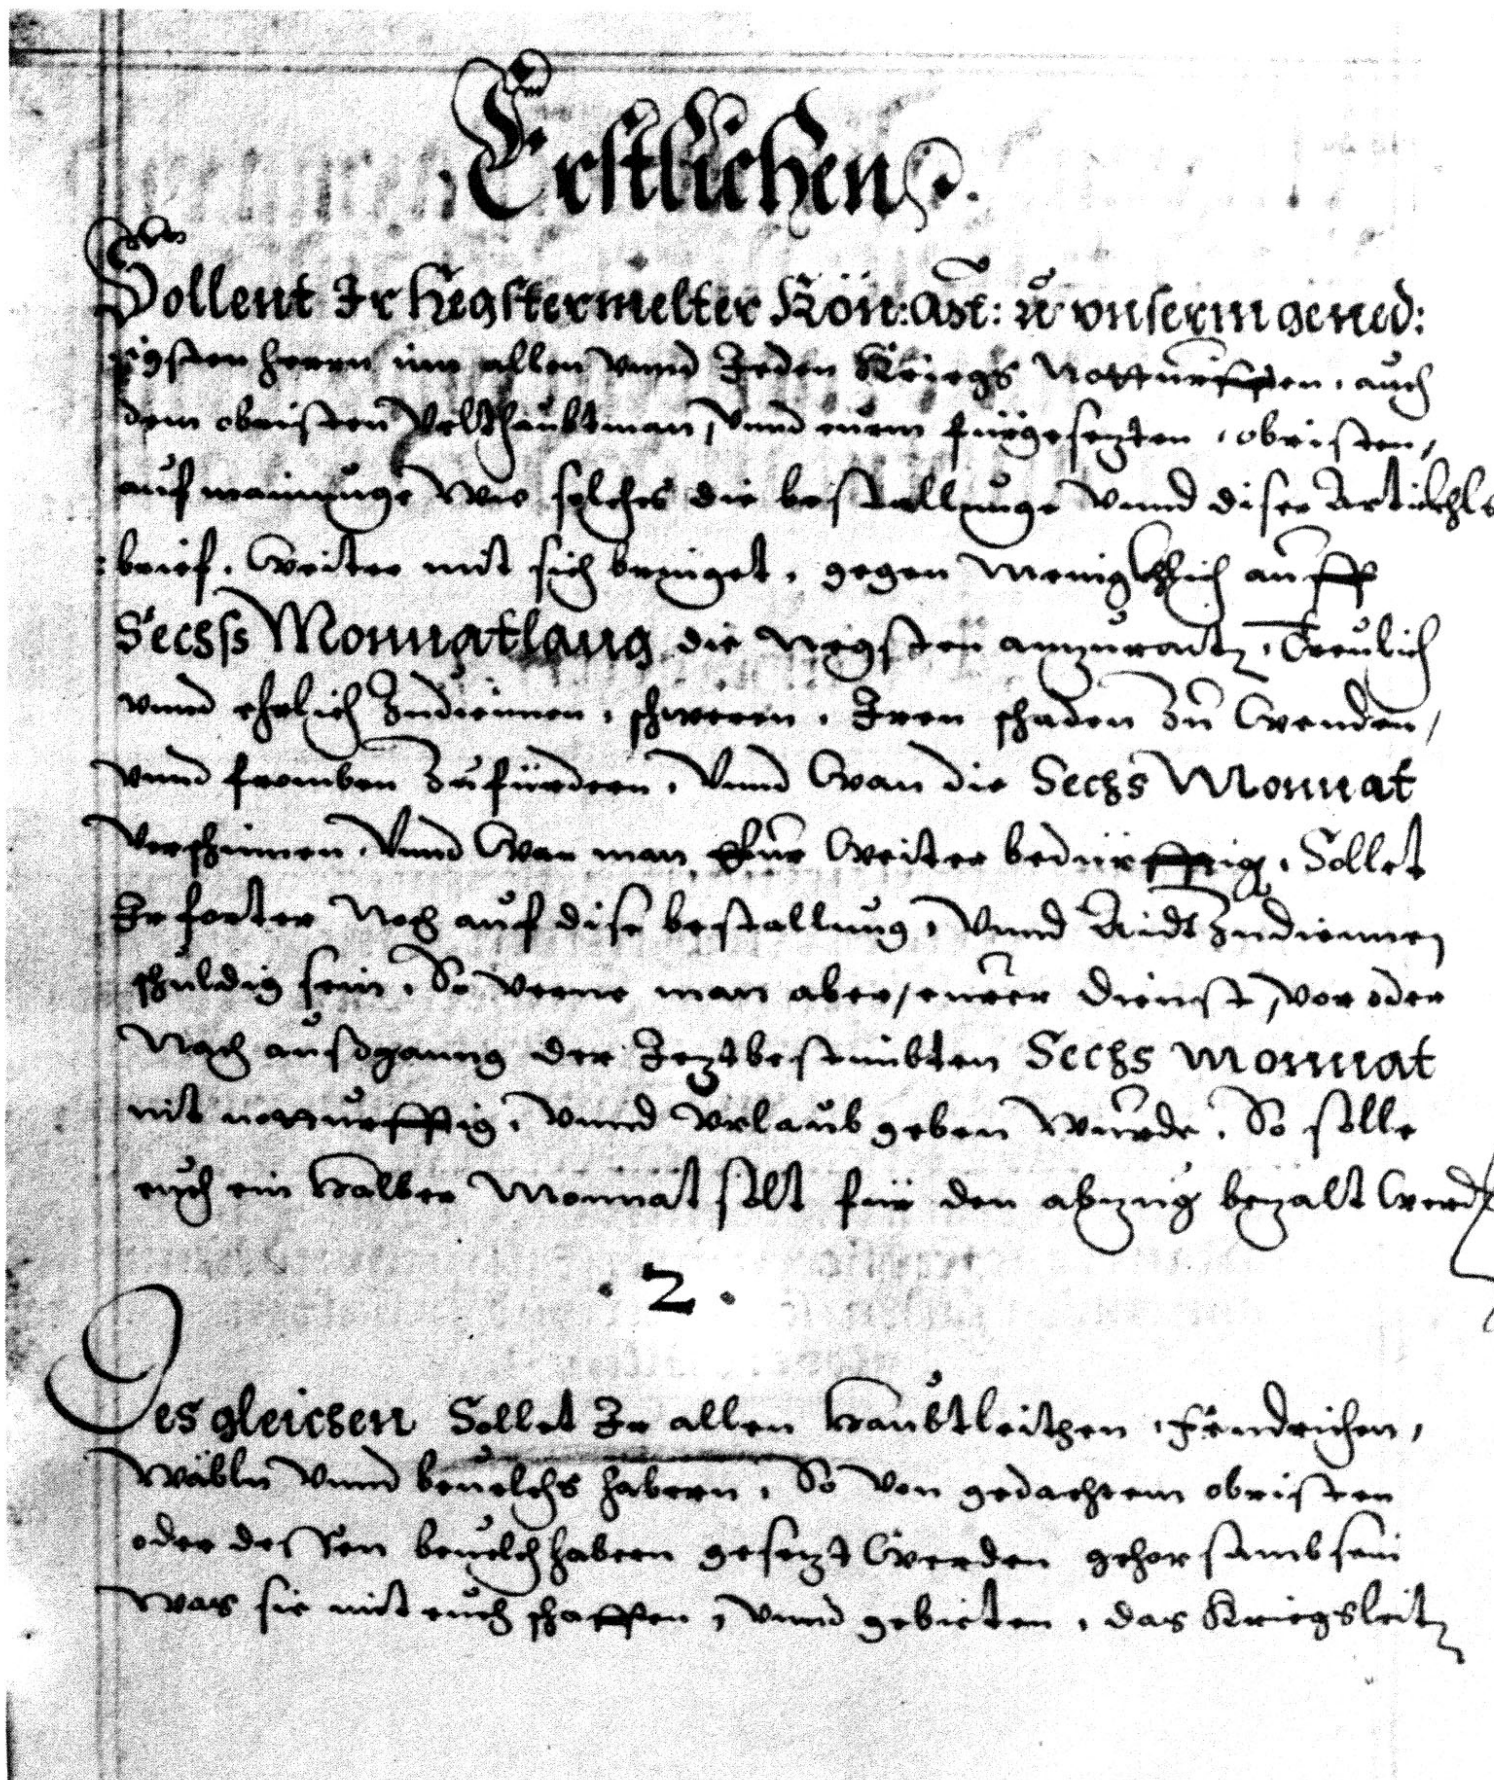 Erstlichen
Sollent Ir hegstermelter Kön: Mt: rc vnserm gened:
igsten herrn inn allen vnnd Jeden Kriegs Notturfften, auch
dem obristen Veldthaubtman, vnnd eurm fürgesezten, obristen,
auf mainunge wie solches die bestallunge vnnd diser Artickhls
: brief, weiter mit sich bringet, gegen Menigkhlich auff
Sechss Monnatlang die negsten anzuraitn, Treulich
vnnd ehrlich Zudiennen, schweren, Iren schaden zu wenden,
vnnd fromben Zufürdern, Vnnd wan die Sechs Monnat
Verschinnen, Vnnd war man Eur weiter bedürfftig, Sollet
Ir forter Noch auf dise bestallung, Vnnd Aidt Zudiennen
schuldig sein, So verne man aber, eurer dienst, vor oder
Nach außganng der Jeztbestimbten Sechs Monnat
nit notturfftig, Vnnd Vrlaub geben wurde, So solle
euch ein halber Monnat solt für den abzug bezalt werdn
. 2 .
Desgleichen Sollet Ir allen haubtleithen, Fendrichen,
Wäbln vnnd beuelchs habern, So von gedachtem obristen
oder dessen beuelchhabern gesezt werden gehorsamb sein
was sie mit euch schaffen, vnnd gebieten, das Kriegsleitn